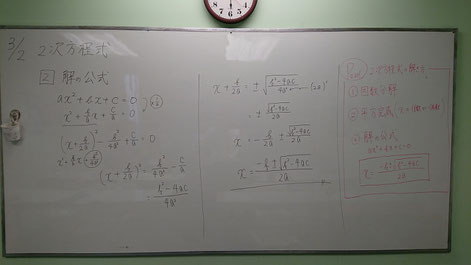 3/2 2次方程式
2 解の公式
ax²+bx+c=0
x²+b/a x+c/a=0
(x+b/2a)²-b²/4a²+c/a=0
(x+b/2a)²=b²/4a²-c/a
=b²-4ac/4a²
x+b/2a=±√b²-4ac/4a²
=±√b²-4ac/2a
x=-b/2a±√b²-4ac/2a
x=-b±√b²-4ac/2a
2次方程式の解き方
① 因数分解
② 平方完成
③ 解の公式
ax²+bx+c=0
x=-b±√b²-4ac/2a